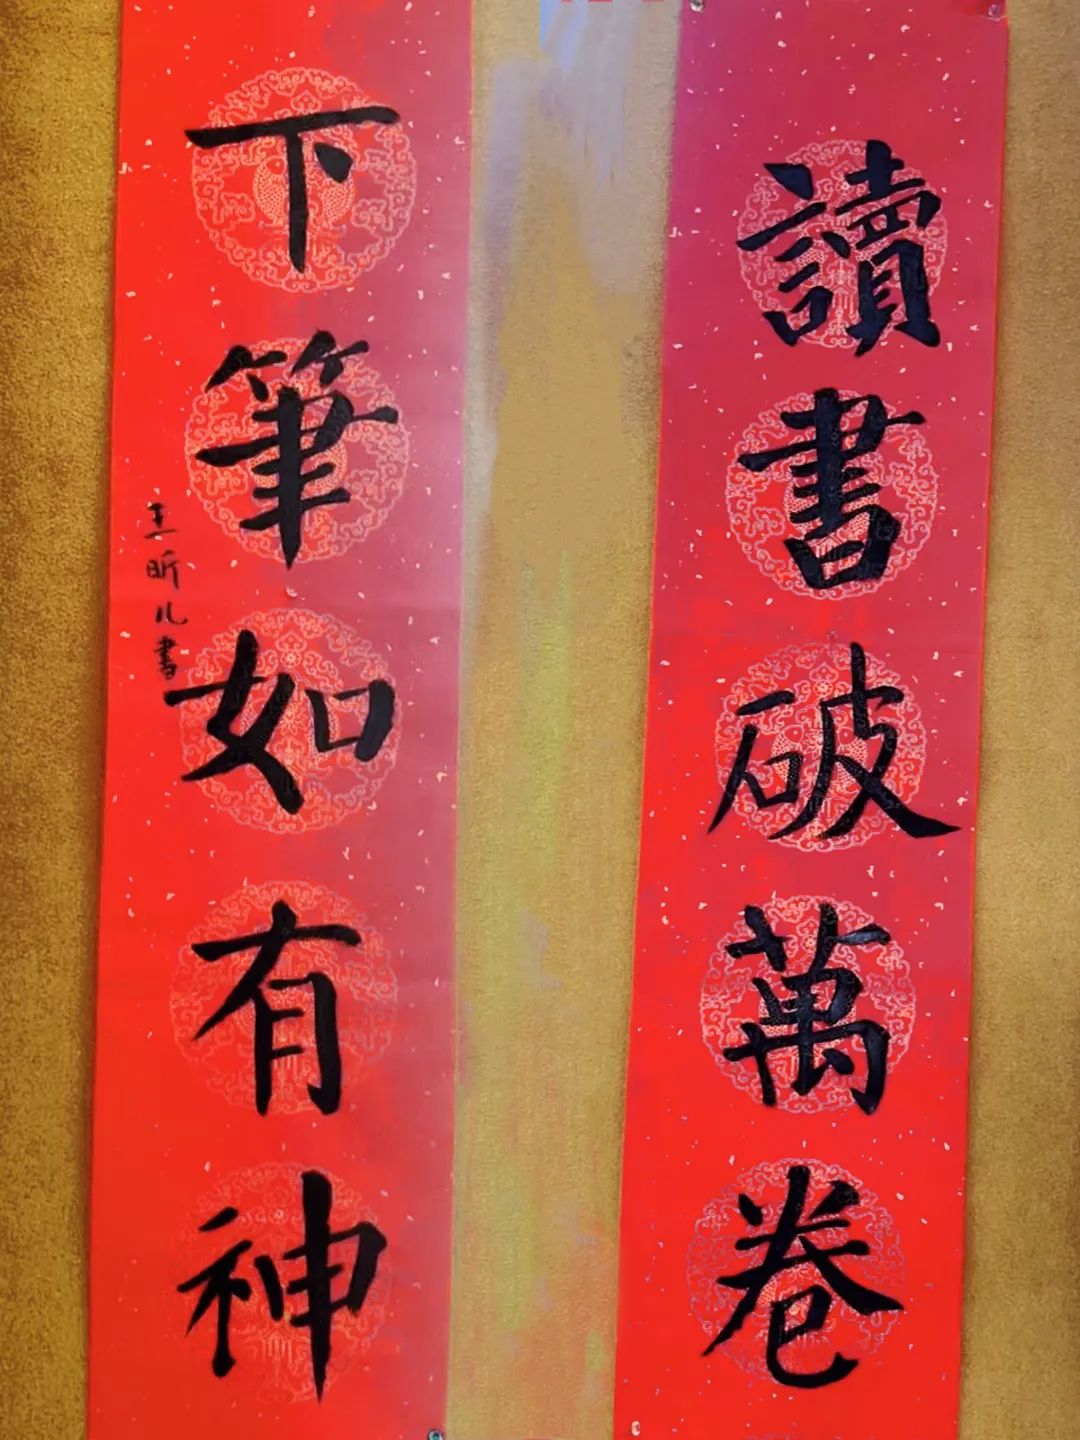 讀書破萬卷
下筆如有神
王昕儿書